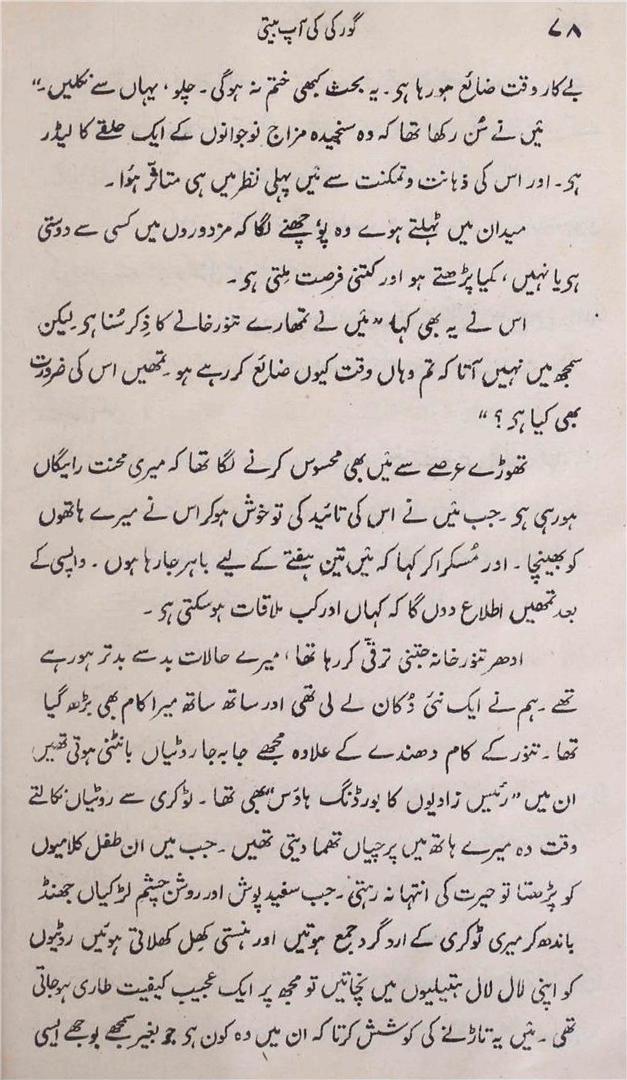 ۷۸
گورکی کی آپ بیتی
بے کار وقت ضائع ہو رہا ہی۔ یہ بحث کبھی ختم نہ ہوگی۔ چلو، یہاں سے نکلیں۔"
مَیں نے سُن رکھا تھا کہ وہ سنجیدہ مزاج نوجوانوں کے ایک حلقے کا لیڈر
ہی۔ اور اس کی ذہانت و تمکنت سے مَیں پہلی نظر میں ہی متاثّر ہُوا۔
میدان میں ٹہلتے ہوے وہ پوٗچھنے لگا کہ مزدوروں میں کسی سے دوستی
ہی یا نہیں، کیا پڑھتے ہو اور کتنی فرصت مِلتی ہی۔
اس نے یہ بھی کہا "مَیں نے تمھارے تنور خانے کا ذِکر سُنا ہی لیکن
سمجھ میں نہیں آتا کہ تم وہاں وقت کیوں ضائع کر رہے ہو۔ تمھیں اس کی ضرورت
بھی کیا ہی؟"
تھوڑے عرصے سے مَیں بھی محسوس کرنے لگا تھا کہ میری محنت رایگاں
ہو رہی ہی۔ جب مَیں نے اس کی تائید کی تو خوش ہو کر اس نے میرے ہاتھوں
کو بھینچا۔ اور مُسکرا کر کہا کہ مَیں تین ہفتے کے لیے باہر جا رہا ہوں۔ واپسی کے
بعد تمھیں اطلاع دوں گا کہ کہاں اور کب ملاقات ہو سکتی ہی۔
ادھر تنور خانہ جتنی ترقّی کر رہا تھا، میرے حالات بد سے بدتر ہو رہے
تھے۔ ہم نے ایک نئی دُکان لے لی تھی اور ساتھ ساتھ میرا کام بھی بڑھ گیا
تھا۔ تنور کے کام دھندے کے علاوہ مجھے جا بہ جا روٹیاں بانٹنی ہوتی تھیں
ان میں "رئیس زادیوں کا بورڈنگ ہاؤس" بھی تھا۔ ٹوکری سے روٹیاں نکالتے
وقت وہ میرے ہاتھ میں پرچیاں تھما دیتی تھیں۔ جب میں ان طفل کلامیوں
کو پڑھتا تو حیرت کی انتہا نہ رہتی۔ جب سفید پوش اور روشن چشم لڑکیاں جھنڈ
باندھ کر میری ٹوکری کے ارد گرد جمع ہوتیں اور ہنستی کھِل کھلاتی ہوئیں روٹیوں
کو اپنی لال لال ہتیلیوں میں نچاتیں تو مجھ پر ایک عجیب کیفیت طاری ہو جاتی
تھی۔ مَیں یہ تاڑنے کی کوشش کرتا کہ ان میں وہ کون ہی جو بغیر سمجھے بوجھے ایسی